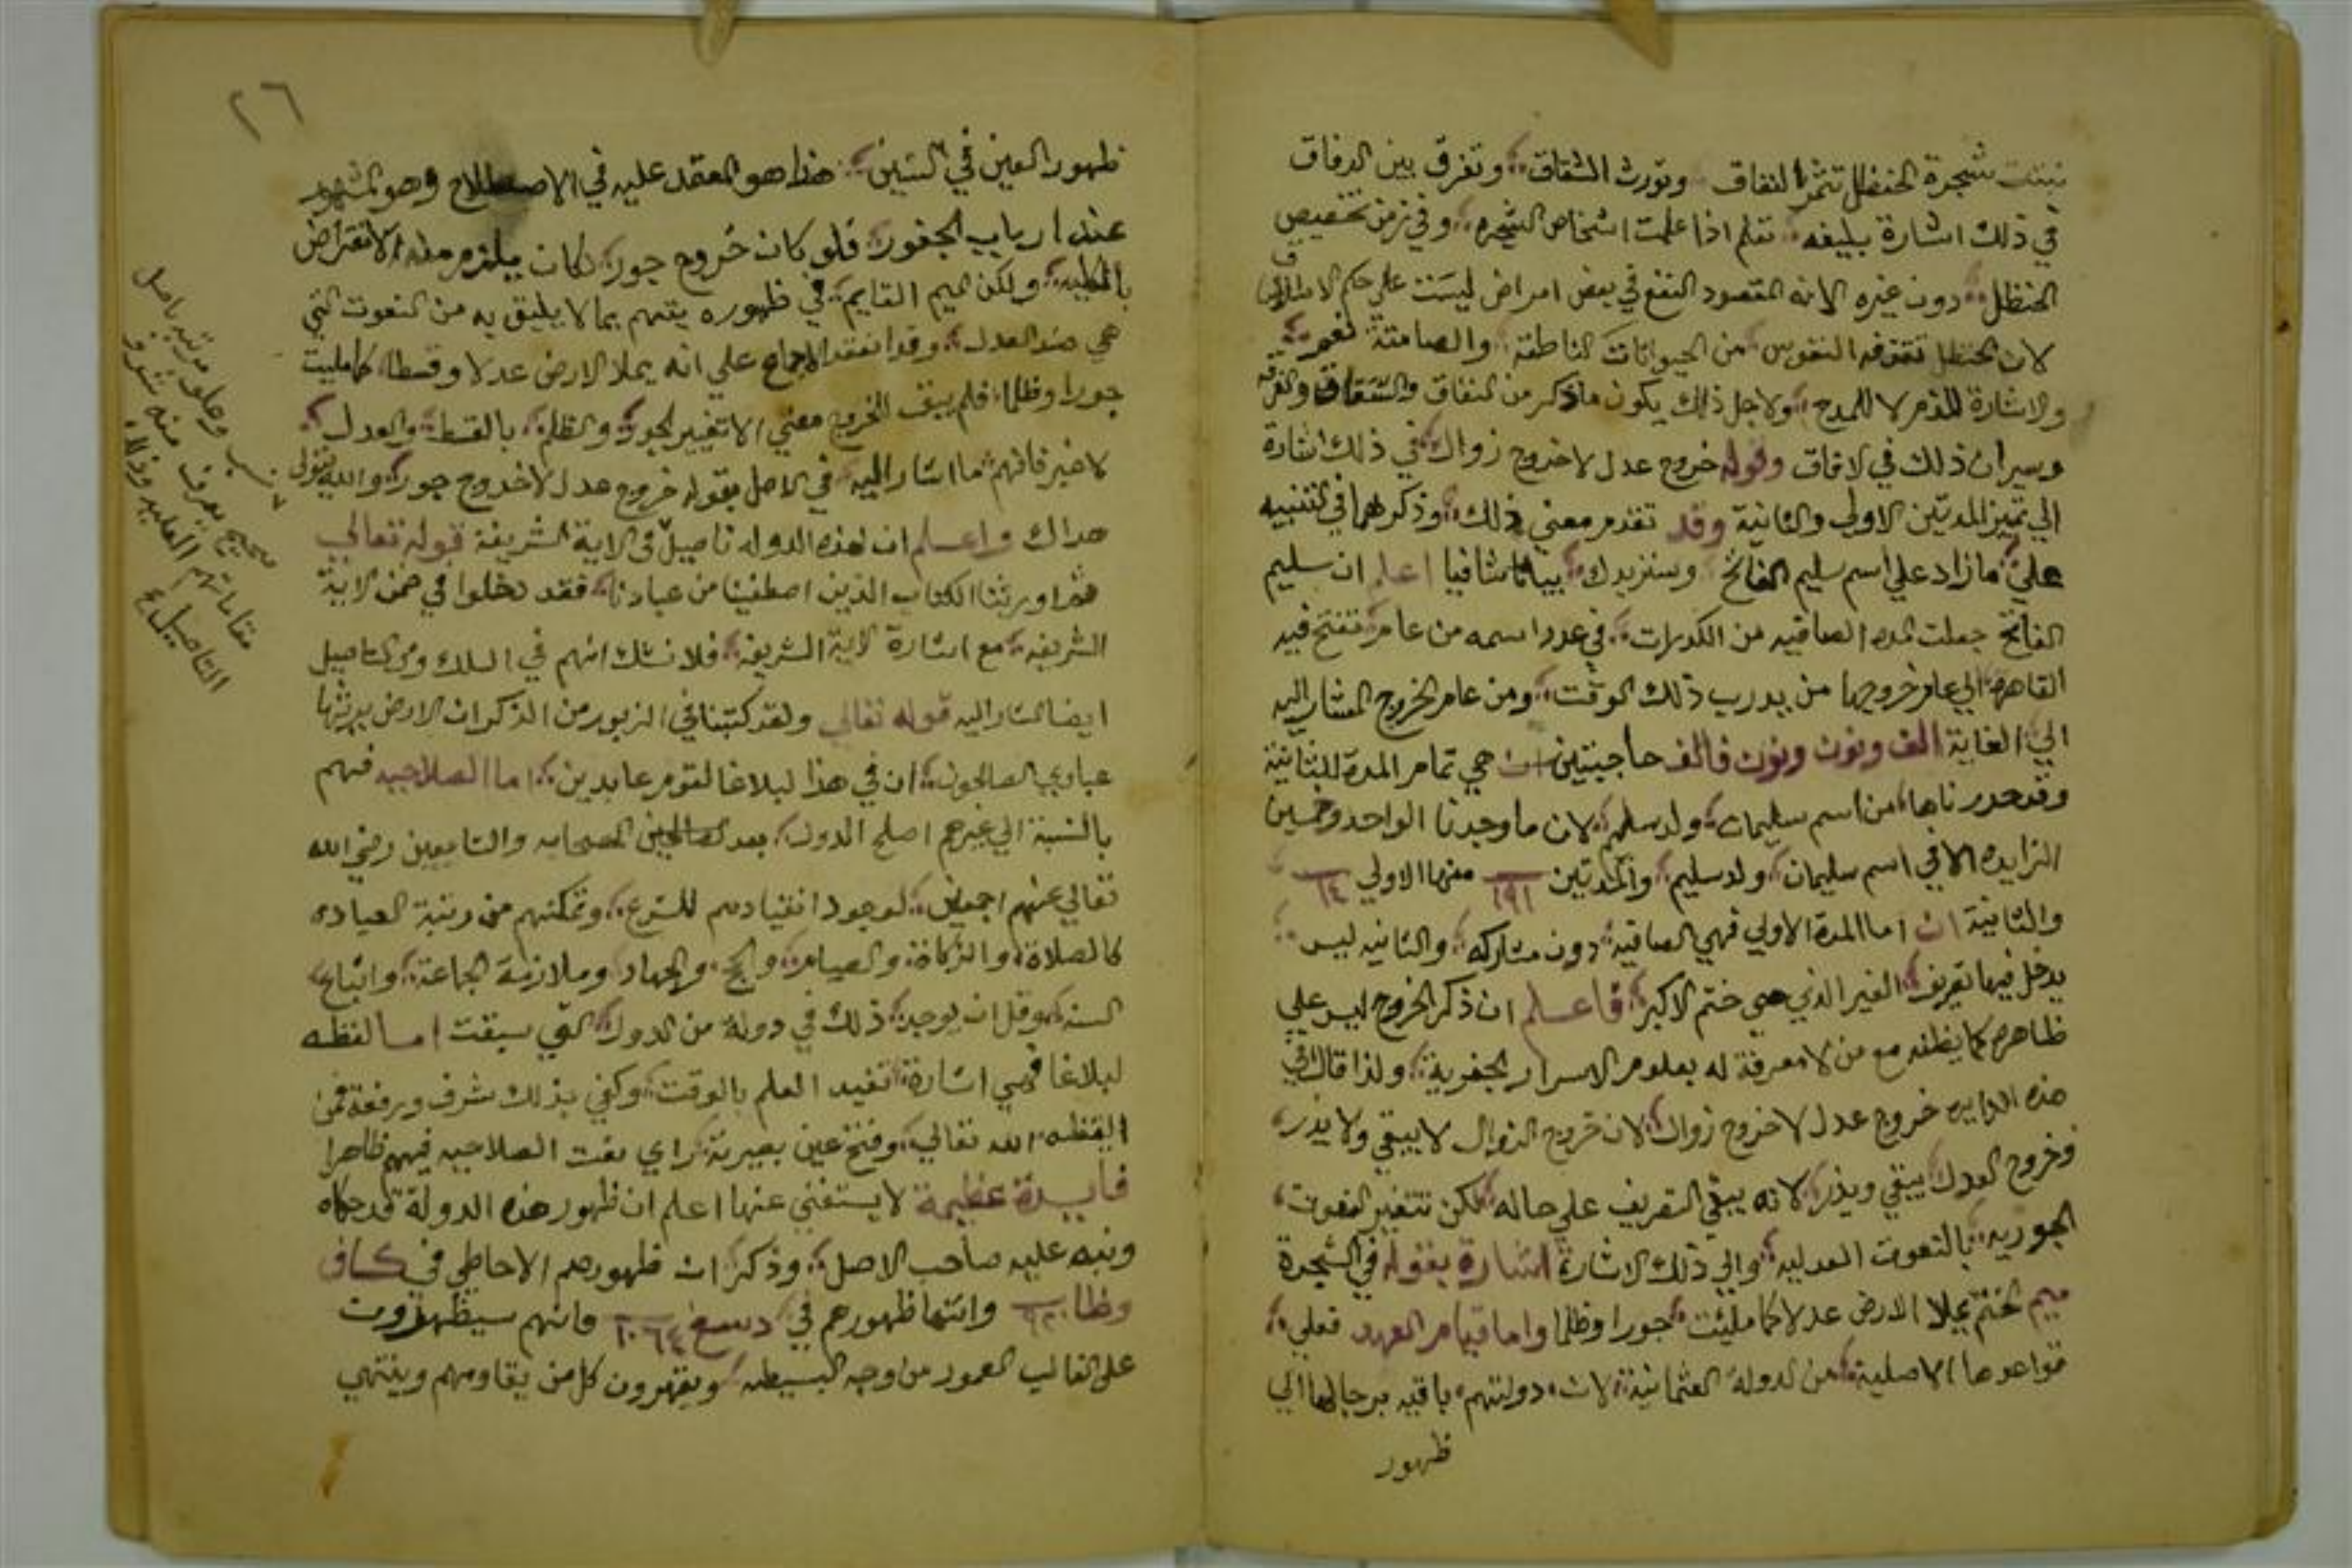 نبتت شجرة الحنظل تثمر النفاق وتورث الشقاق وتفرق بين الرفاق
في ذلك اشارة بليغه تعلم اذا علمت اشخاص الشجره وفي رمز تخصيص
الحنظل دون غيره لانه المقصود النفع في بعض امراض ليست علي حكم الاطلاق
لان الحنظل تقذفه النفوس من الحيوانات الناطقة والصامتة نعم
والاشارة للذم لا للمدح ولاجل ذلك يكون ما ذكر من النفاق والشقاق والفرقه
وسيران ذلك في الافاق وقوله خروج عدل لا خروج زوال في ذلك اشارة
الي تمييز المدتين الاولي والثانية وقد تقدم معني ذلك وذكرهما في التنبيه
علي ما زاد علي اسم سليم الفاتح وسنزيدك بيانا شافيا اعلم ان سليم
الفاتح جعلت المده الصافيه من الكدرات في عدد اسمه من عام تفتح فيه
القاهره الي عام خروجها من يد رب ذلك الوقت ومن عام الخروج المشار اليه
الي الغاية الف ونون ونون فالف حاجبتين ان هي تمام المدة الثانية
وقد حررناها من اسم سليمان ولد سليم لان ما وجدنا الواحد وخمسين
الزايده الا في اسم سليمان ولد سليم والمدتين ١٩١ منها الاولي ١٤
والثانية ان اما المدة الاولي فهي الصافيه دون مشاركه والثانيه ليس
يدخل فيها تعريف الغير الذي هي ختم الاكبر فاعلم ان ذكر الخروج ليس علي
ظاهره كما يظنه مع من لا معرفة له بعلوم الاسرار الجفرية ولذا قال في
هذه الدايره خروج عدل لا خروج زوال لان خروج الزوال لا يبقي ولا يذر
وخروج العدل يبقي ويذر لانه يبقي التعريف علي حاله لكن تتغير النعوت
الجوريه بالنعوت العدليه والي ذلك الاشارة اشارة بقوله في الشجرة
ميم الختم يملا الارض عدلا كما مليئت جورا وظلما واما قيام العهد فعلي
قواعدها الاصلية من الدولة العثمانية لان دولتهم باقيه برجالها الي
ظهور
٢٦
ظهور العين في السين هذا هو المعتمد عليه في الاصطلاح وهو المشهور
عند ارباب الجفور فلو كان خروج جور لكان يلزم منه الانقراض
بالكليه ولكن الميم القايم في ظهوره يتهم بما لا يليق به من النعوت التي
هي ضد العدل وقد انعقد الاجماع علي انه يملا الارض عدلا وقسطا كما مليت
جورا وظلما فلم يبق للخروج معني الا تغيير الجور والظلم بالقسط والعدل
لا غير فافهم ما اشار اليه في الاصل بقوله خروج عدل لا خروج جور والله يتولي
هداك واعلم ان لهذه الدوله تاصيل في الاية الشريفة قوله تعالي
ثم اورثنا الكتاب الذين اصطفينا من عبادنا فقد دخلوا في ضمن الاية
الشريفه مع اشارة الاية الشريفه فلا نشك انهم في السلك ومن التاصيل
ايضا المشار اليه قوله تعالي ولقد كتبنا في الزبور من الذكر ان الارض يرثها
عبادي الصالحون ان في هذا لبلاغا لقوم عابدين اما الصلاحيه فهم
بالنسبة الي غيرهم اصلح الدول بعد الصالحين الصحابه والتابعين رضي الله
تعالي عنهم اجمعين لوجود انقيادهم للشرع وتمكنهم من رتبة العباده
كالصلاة والزكاة والصيام والحج والجهاد وملازمة الجماعة واتباع
السنه وقل ان يوجد ذلك في دولة من الدول التي سبقت اما لفظه
لبلاغا فهي اشارة تفيد العلم بالوقت وكفي بذلك شرف ورفعة فمن
ايقظه الله تعالي وفتح عين بصيرته راي نعت الصلاحيه فيهم ظاهرا
فايدة عظيمة لا يستغني عنها اعلم ان ظهور هذه الدولة قد حكاه
ونبه عليه صاحب الاصل وذكر ان ظهورهم الاحاطي في كاف
وظا وانتها ظهورهم في فانهم سيظهرون
علي الغالب المعمور من وجه البسيطه ويقهرون كل من يقاومهم وينتهي
نسب وعلو مرتبه باصل
صحيح يعرف منه شرف
مقاماتهم العليه وذلك
التاصيل